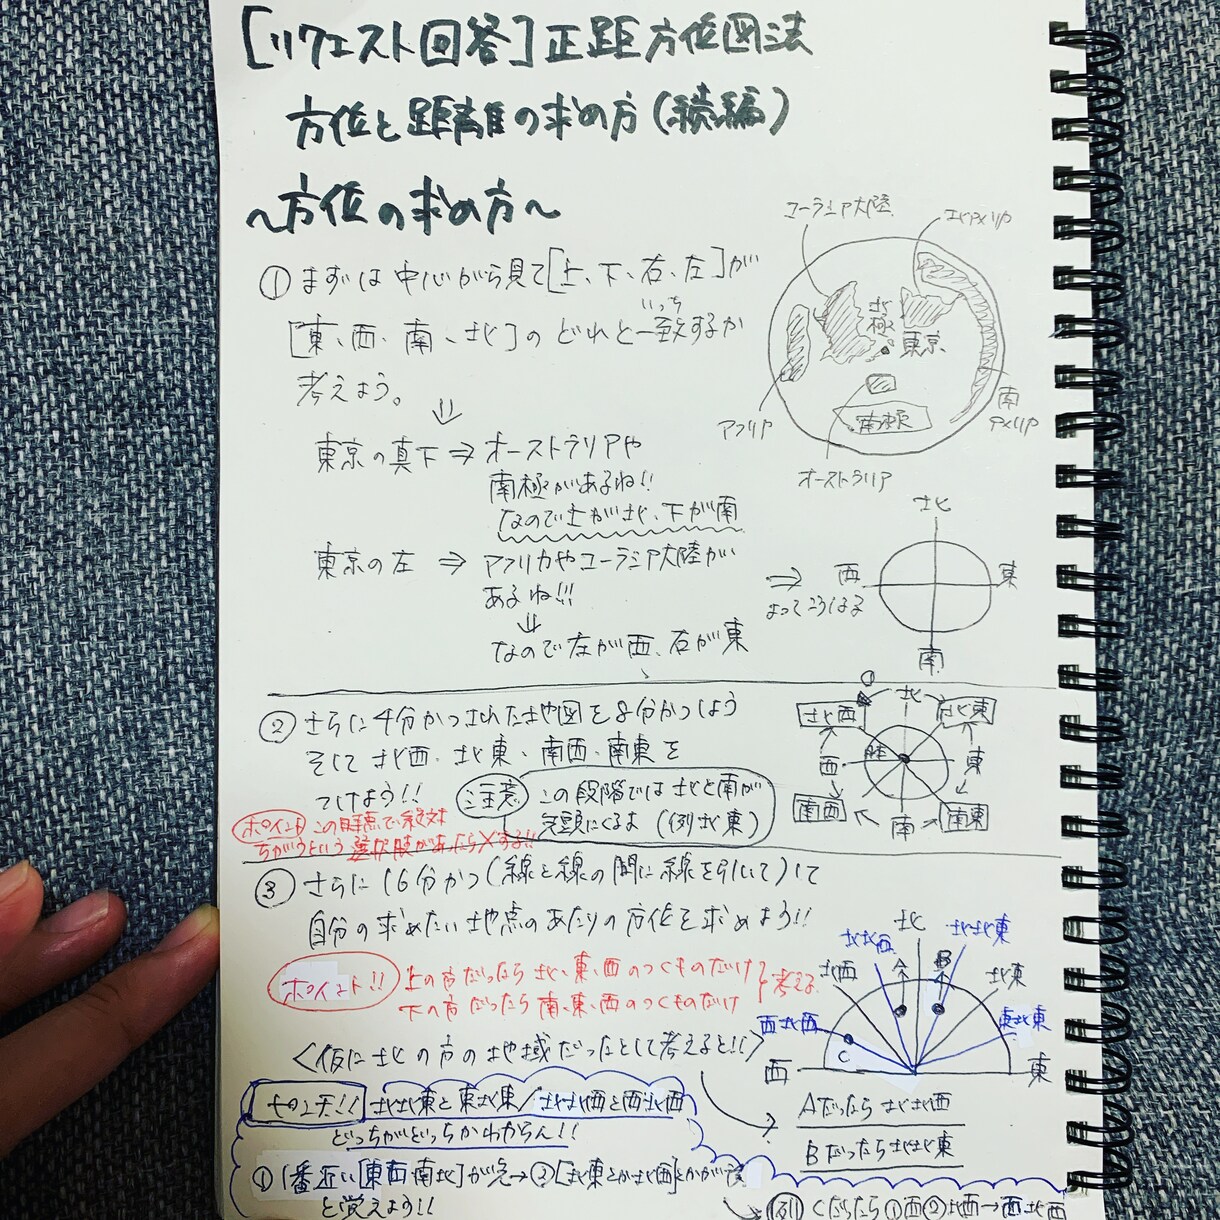 [リクエスト回答]正距方位図法
方位と距離の求め方(続編)
~方位の求め方~
①まずは中心から見て[上、下、右、左]が
いっち
[東、西、南、北]のどれと一致するか
考えよう。
東京の真下⇒オーストラリアや
南極があるね!!
なので上が北、下が南
東京の左⇒アフリカやユーラシア大陸が
あるね!!!
なので左が西、右が東
ユーラシア大陸
北アメリカ
北極
東京
南極
アフリカ
南アメリカ
オーストラリア
⇒
よってこうなる
北
西
東
南
②さらに4分かつされた地図を8分かつしよう
そして北西、北東、南西、南東を
つけよう!!
注意
この段階では北と南が
先頭にくるよ(例北東)
ポイント この時点で絶対
ちがうという選択肢があったら×する!!
北
北西
北東
西
東
南西
南
南東
③さらに16分かつ(線と線の間に線を引いて)して
自分の求めたい地点のあたりの方位を求めよう!!
ポイント!! 上の方だったら北、東、西のつくものだけ
下の方だったら南、東、西のつくものだけ
考える
<仮に北の方の地域だったとして考えると!!>
北
北北西
北北東
北西
北東
西北西
東北東
西
東
A
B
C
Aだったら北北西
Bだったら北北東
北北東と東北東/北北西と西北西
どっちがどっちかわからん!!
①1番近い[東西南北]が先→②[北東とか北西]とかが後
と覚えよう!!
(例)Cだったら①西②北西→西北西